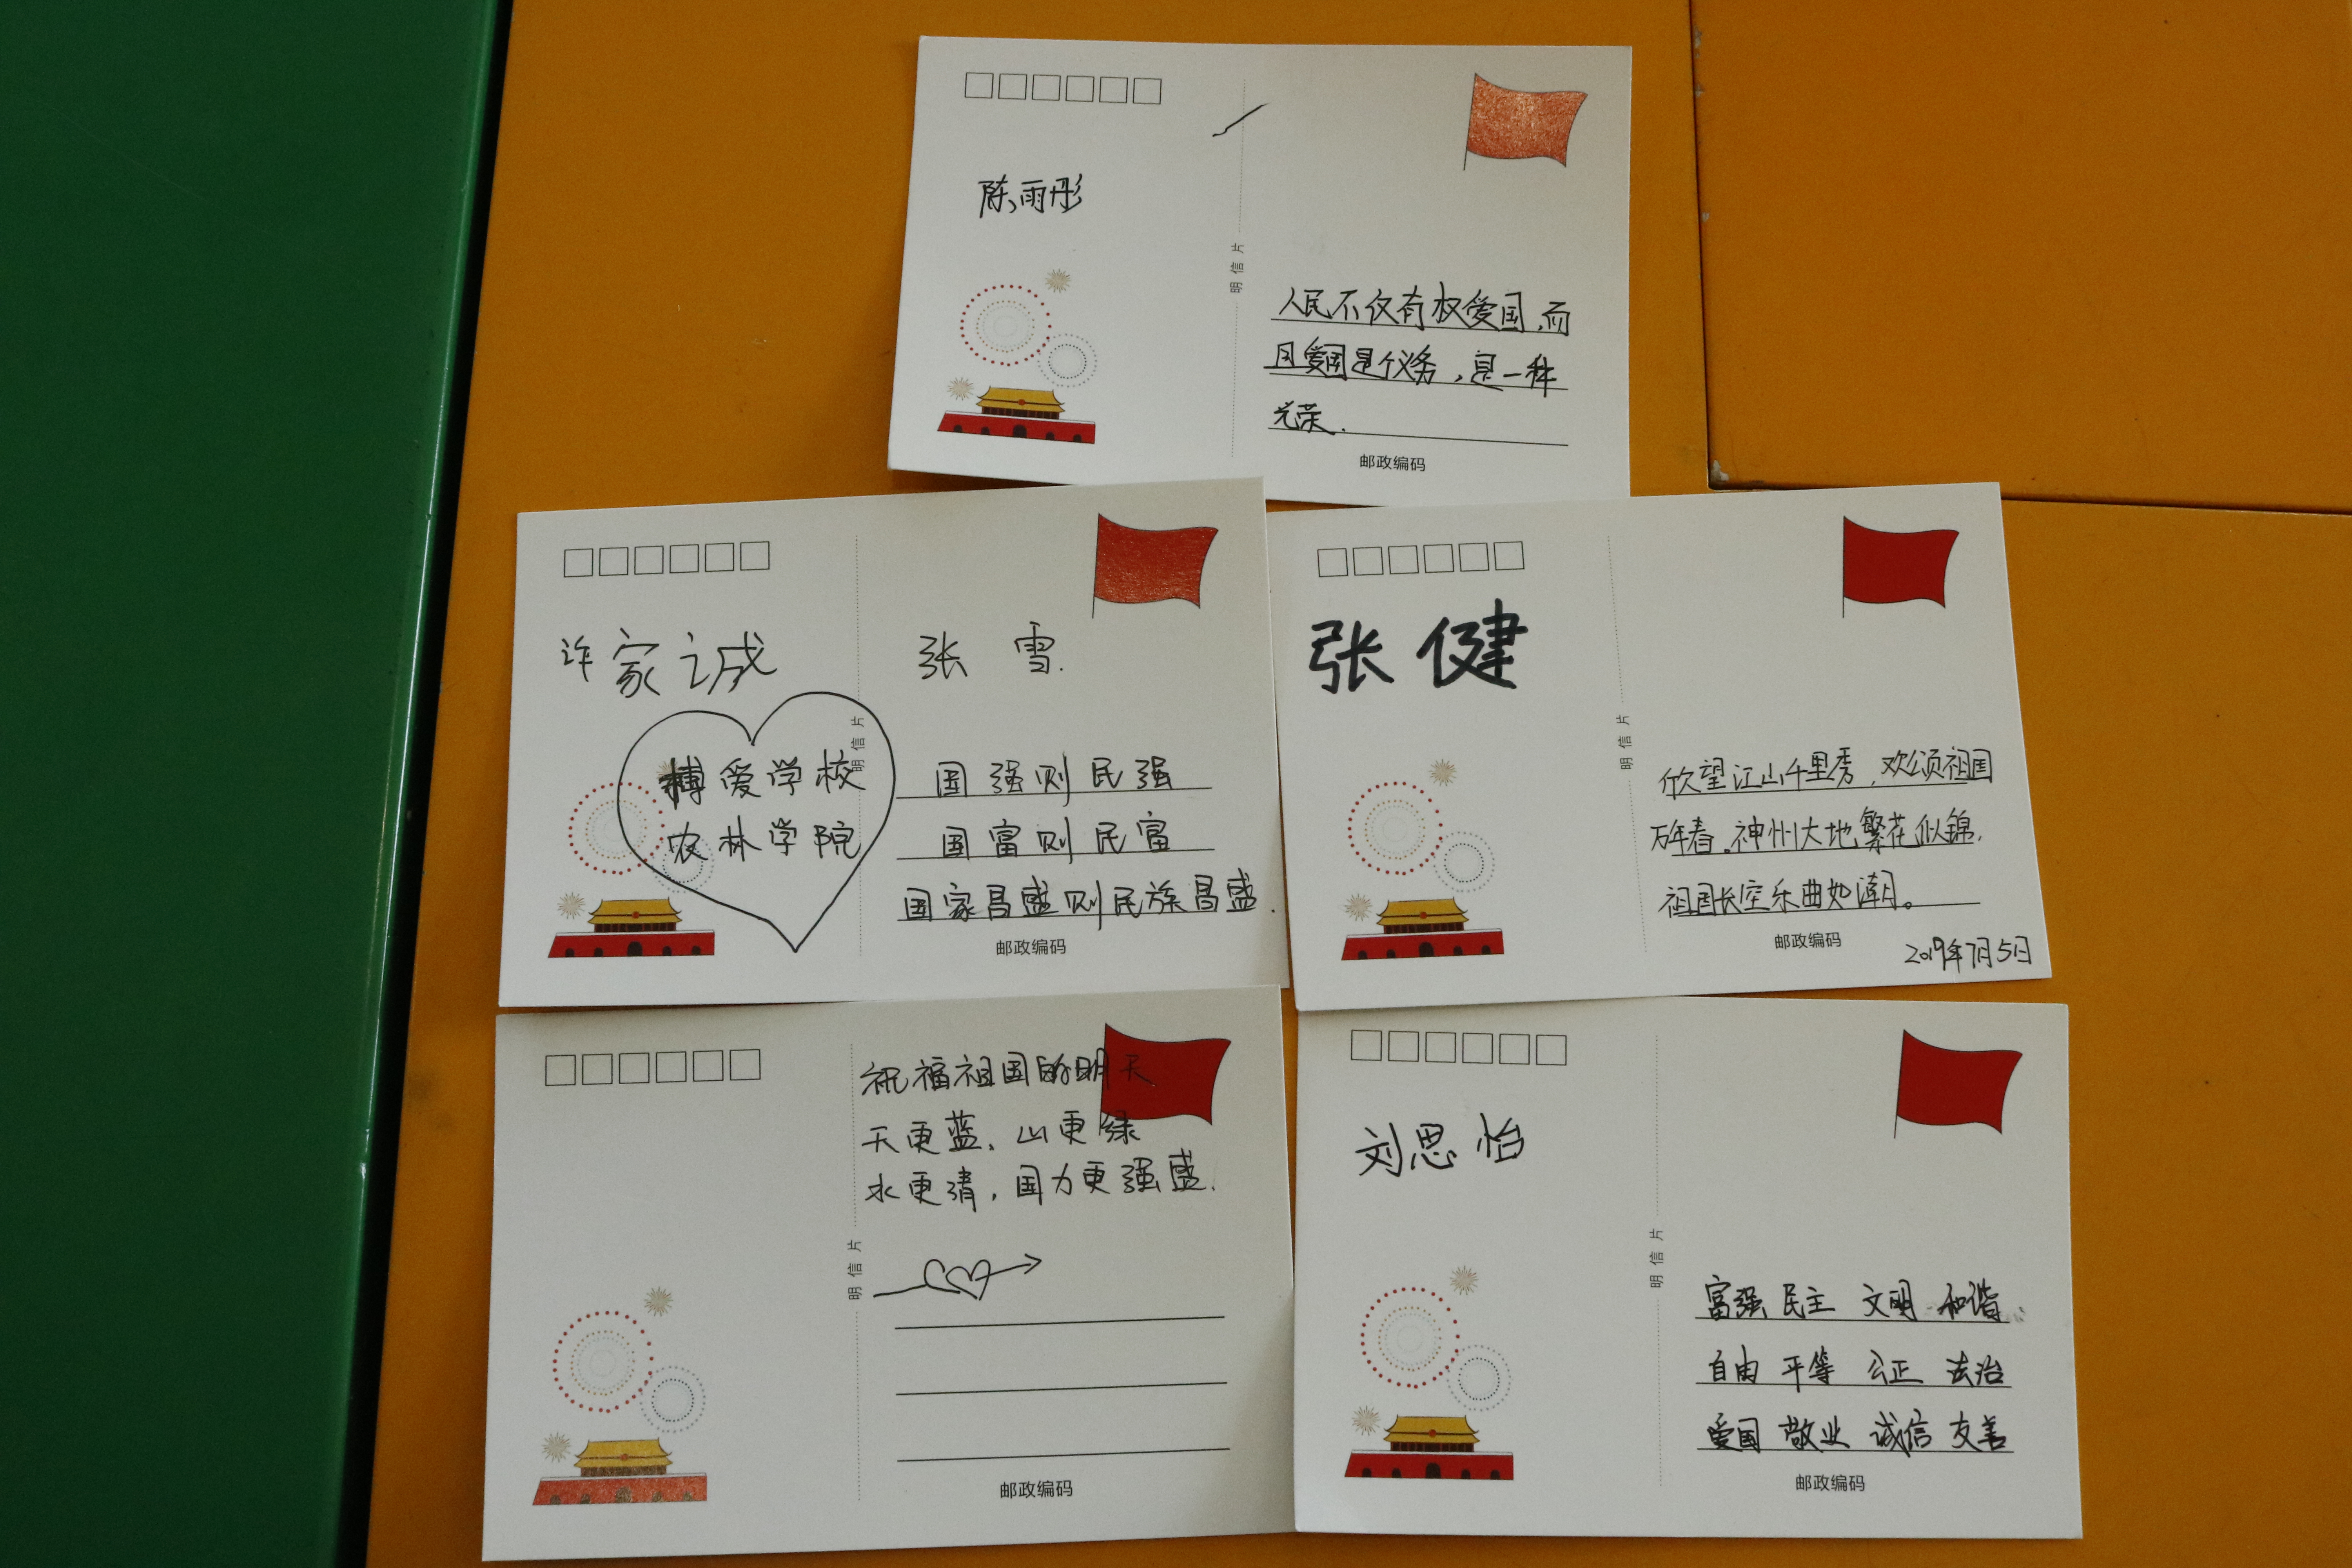 陈雨彤
明信片
人民不仅有权爱国,而
且爱国是个义务,是一种
光荣.
邮政编码
许家诚
博爱学校
农林学院
明信片
张雪.
国强则民强
国富则民富
国家昌盛则民族昌盛.
邮政编码
张健
明信片
欣望江山千里秀,欢颂祖国
万年春。神州大地繁花似锦,
祖国长空乐曲如潮。
邮政编码
2019年7月5日
祝福祖国的明天
天更蓝、山更绿
水更清,国力更强盛.
明信片
邮政编码
刘思怡
明信片
富强 民主 文明 和谐
自由 平等 公正 法治
爱国 敬业 诚信 友善
邮政编码